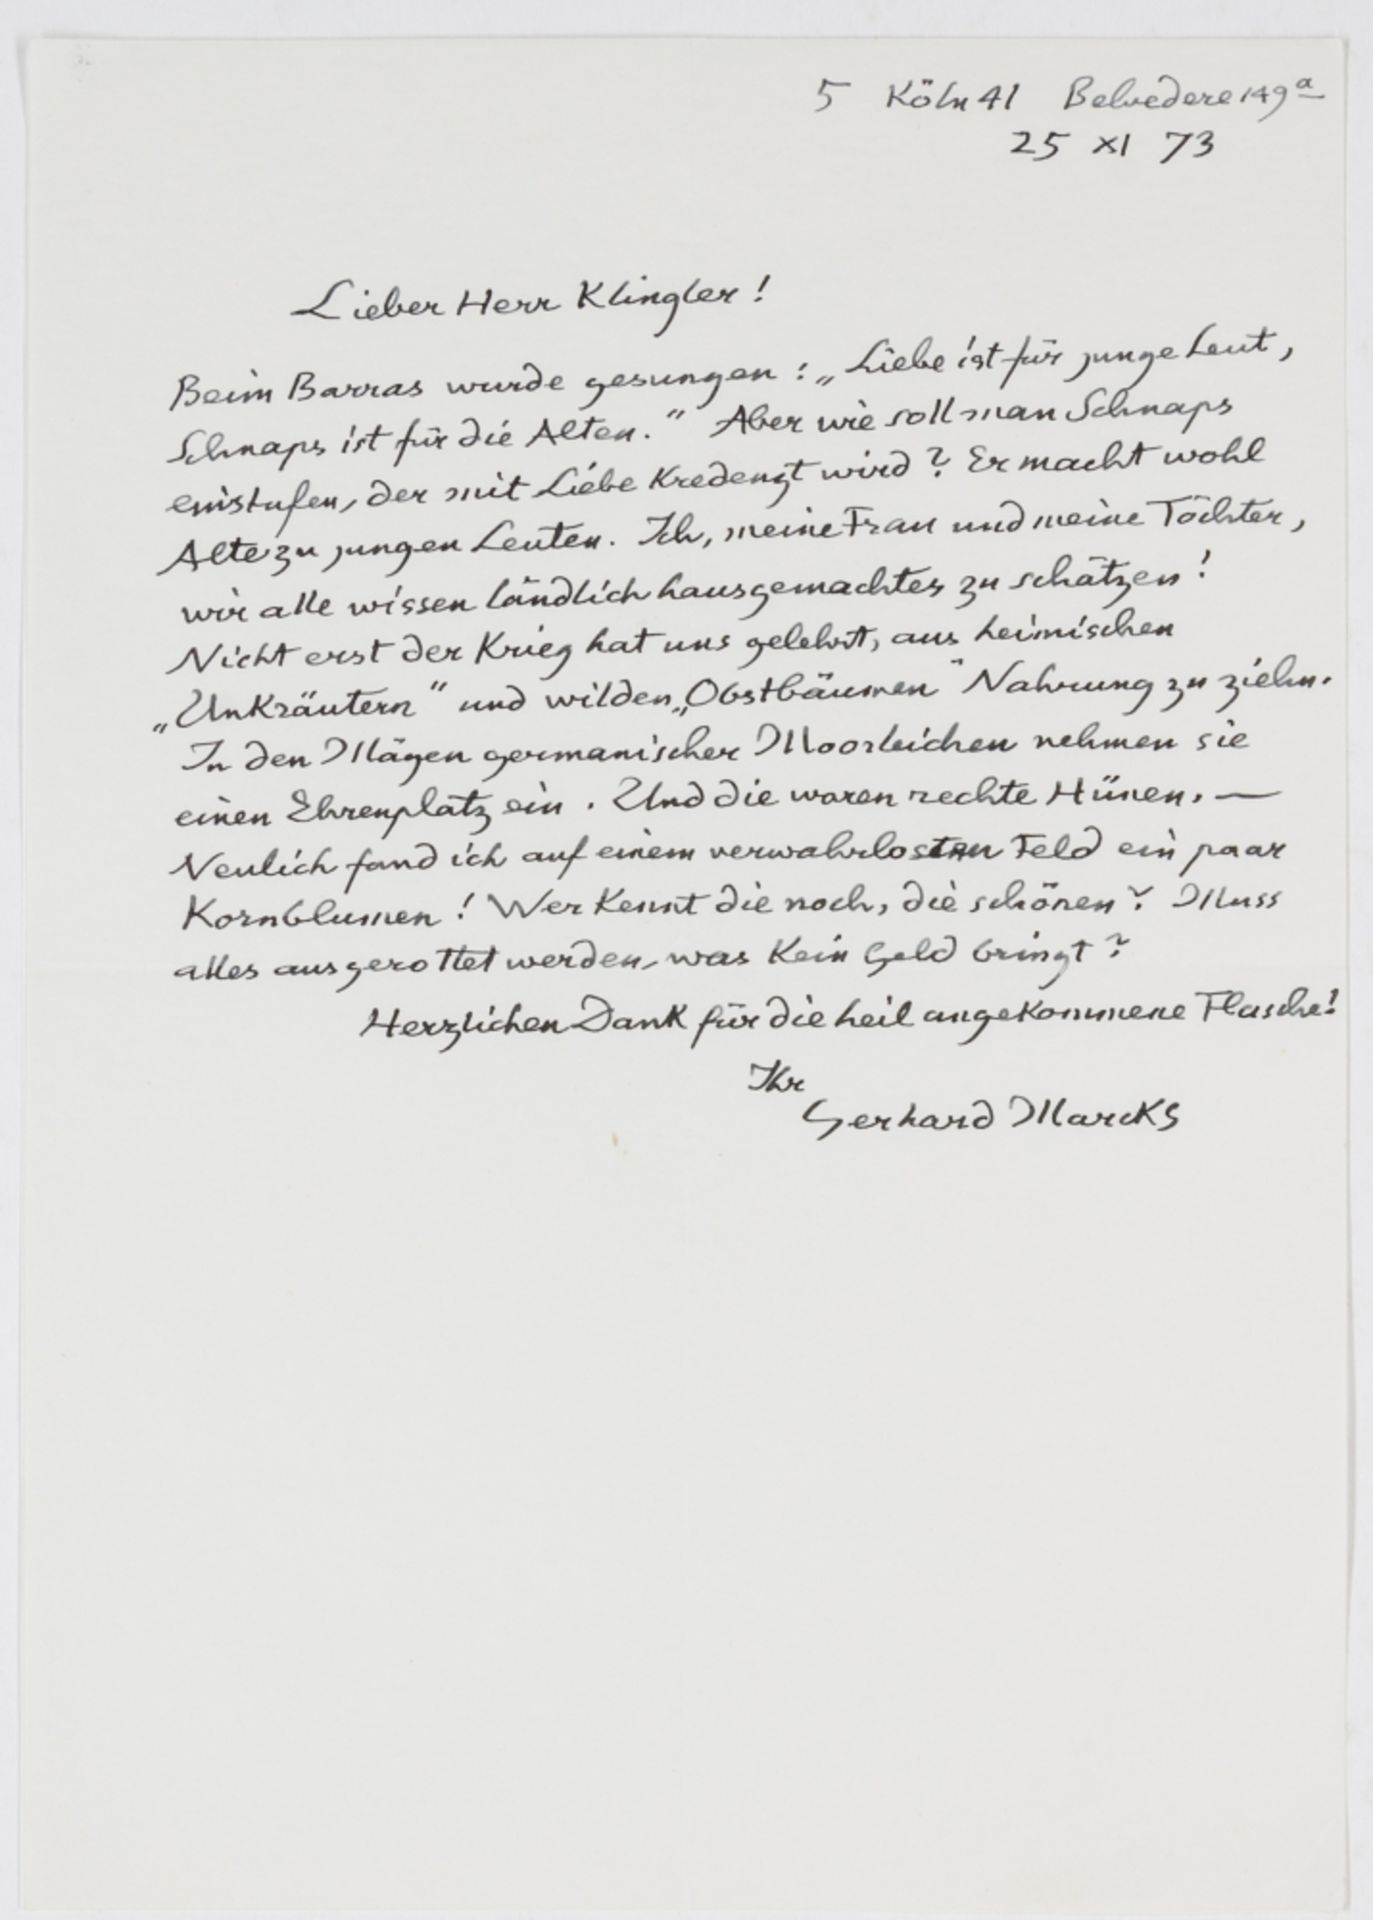 5 Köln 41 Belvedere 149a
25 XI 73
Lieber Herr Klingler!
Beim Barras wurde gesungen: „Liebe ist für junge Leut,
Schnaps ist für die Alten.“ Aber wie soll man Schnaps
einstufen, der mit Liebe kredenzt wird? Er macht wohl
Alte zu jungen Leuten. Ich, meine Frau und meine Töchter,
wir alle wissen ländlich hausgemachtes zu schätzen!
Nicht erst der Krieg hat uns gelehrt, aus heimischen
„Unkräutern“ und wilden „Obstbäumen“ Nahrung zu ziehn.
In den Mägen germanischer Moorleichen nehmen sie
einen Ehrenplatz ein. Und die waren rechte Hünen. —
Neulich fand ich auf einem verwahrlosten Feld ein paar
Kornblumen! Wer kennt die noch, die schönen? Muss
alles ausgerottet werden, was kein Geld bringt?
Herzlichen Dank für die heil angekommene Flasche!
Ihr
Gerhard Marcks